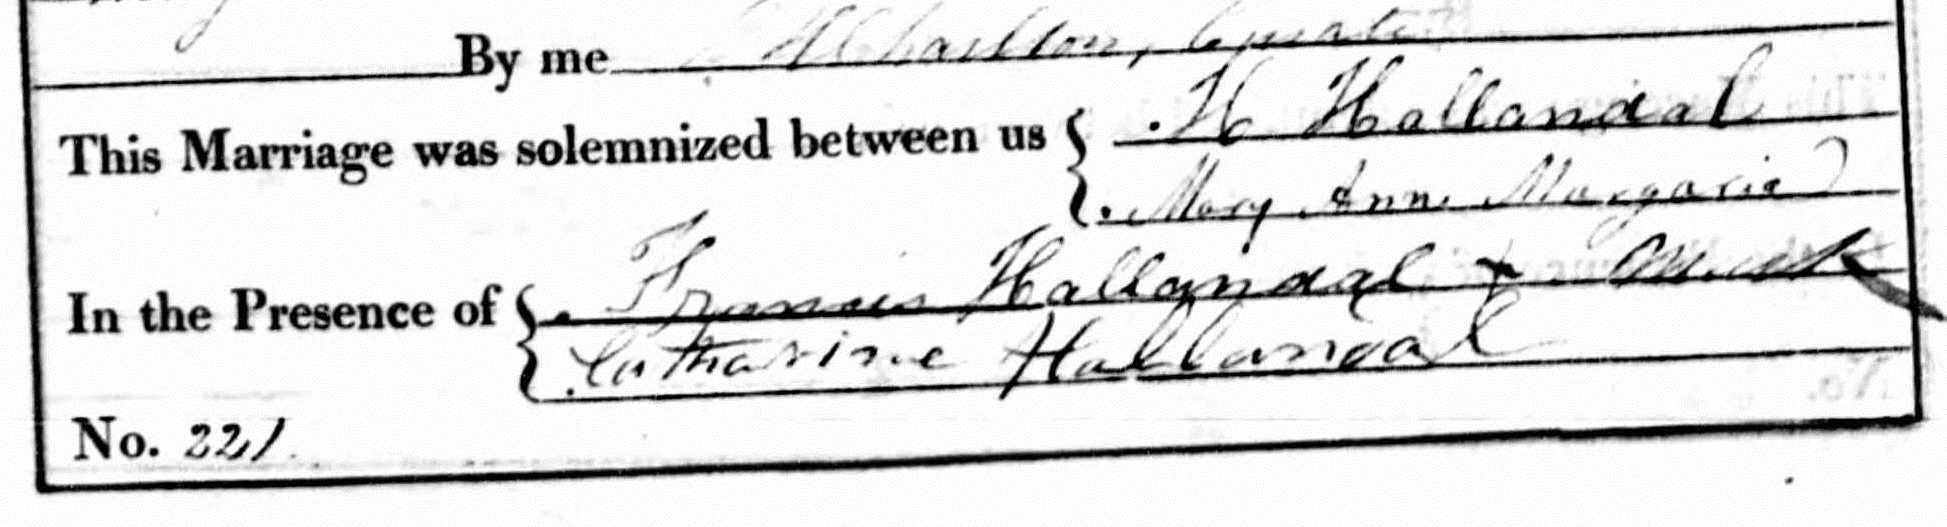 By me W Charlton, Curate
This Marriage was solemnized between us { H Hallandal
Mary Ann Margarie
In the Presence of { Francis Hallandal
Catharine Hallandal
No. 221.